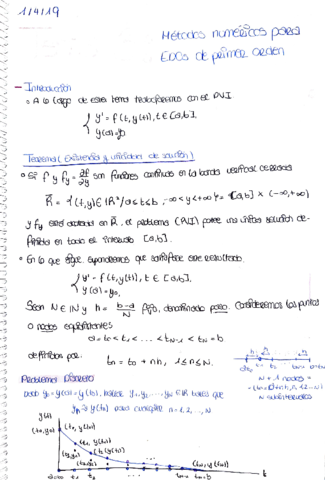 1/4/19
Métodos numéricos para
EDOs de primer orden
- Introducción
• A lo largo de este tema trabajaremos con el PVI
{ y' = f(t, y(t)), t ∈ [a,b],
y(a) = y₀
Teorema (Existencia y unicidad de solución)
• Si f y f_y = ∂f/∂y son funciones continuas en la banda vertical cerrada
R̄ = {(t,y) ∈ ℝ² / a ≤ t ≤ b, -∞ < y < +∞} = [a,b] × (-∞,+∞)
y f_y está acotada en R̄, el problema (PVI) posee una única solución de-
finida en todo el intervalo [a,b].
• En lo que sigue supondremos que satisface este resultado.
{ y' = f(t, y(t)), t ∈ [a,b],
y(a) = y₀,
Sean N ∈ ℕ y h = (b-a)/N fijo, denominado paso. Consideremos los puntos
o nodos equidistantes
a = t₀ < t₁ < ... < t_{N-1} < t_N = b
definidos por: t_n = t₀ + nh, 1 ≤ n ≤ N.
N + 1 nodos
N subintervalos
Problema Discreto
Dado y₀ = y(a) = y(t₀), hallar y₁, y₂, ..., y_N ∈ ℝ tales que
y_n ≃ y(t_n) para cualquier n = 1, 2, ..., N
y(t)
(t₀, y₀)
(t₁, y(t₁))
t